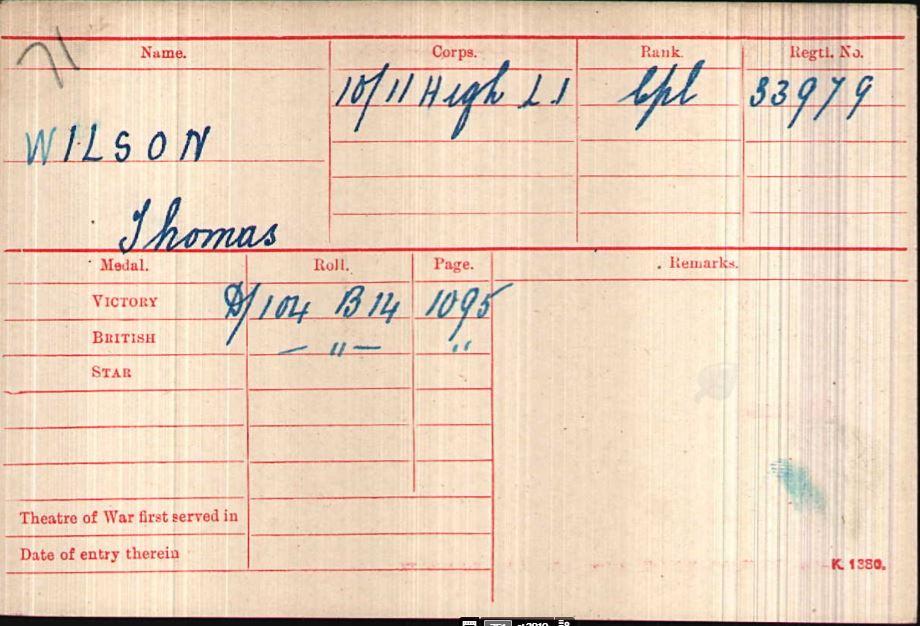 71
Name. Corps. Rank. Regtl. No.
10/11 High L I Cpl 33979
WILSON
Thomas
Medal. Roll. Page. Remarks.
VICTORY D/104 B14 1095
BRITISH — " — "
STAR
Theatre of War first served in
Date of entry therein
K. 1380.